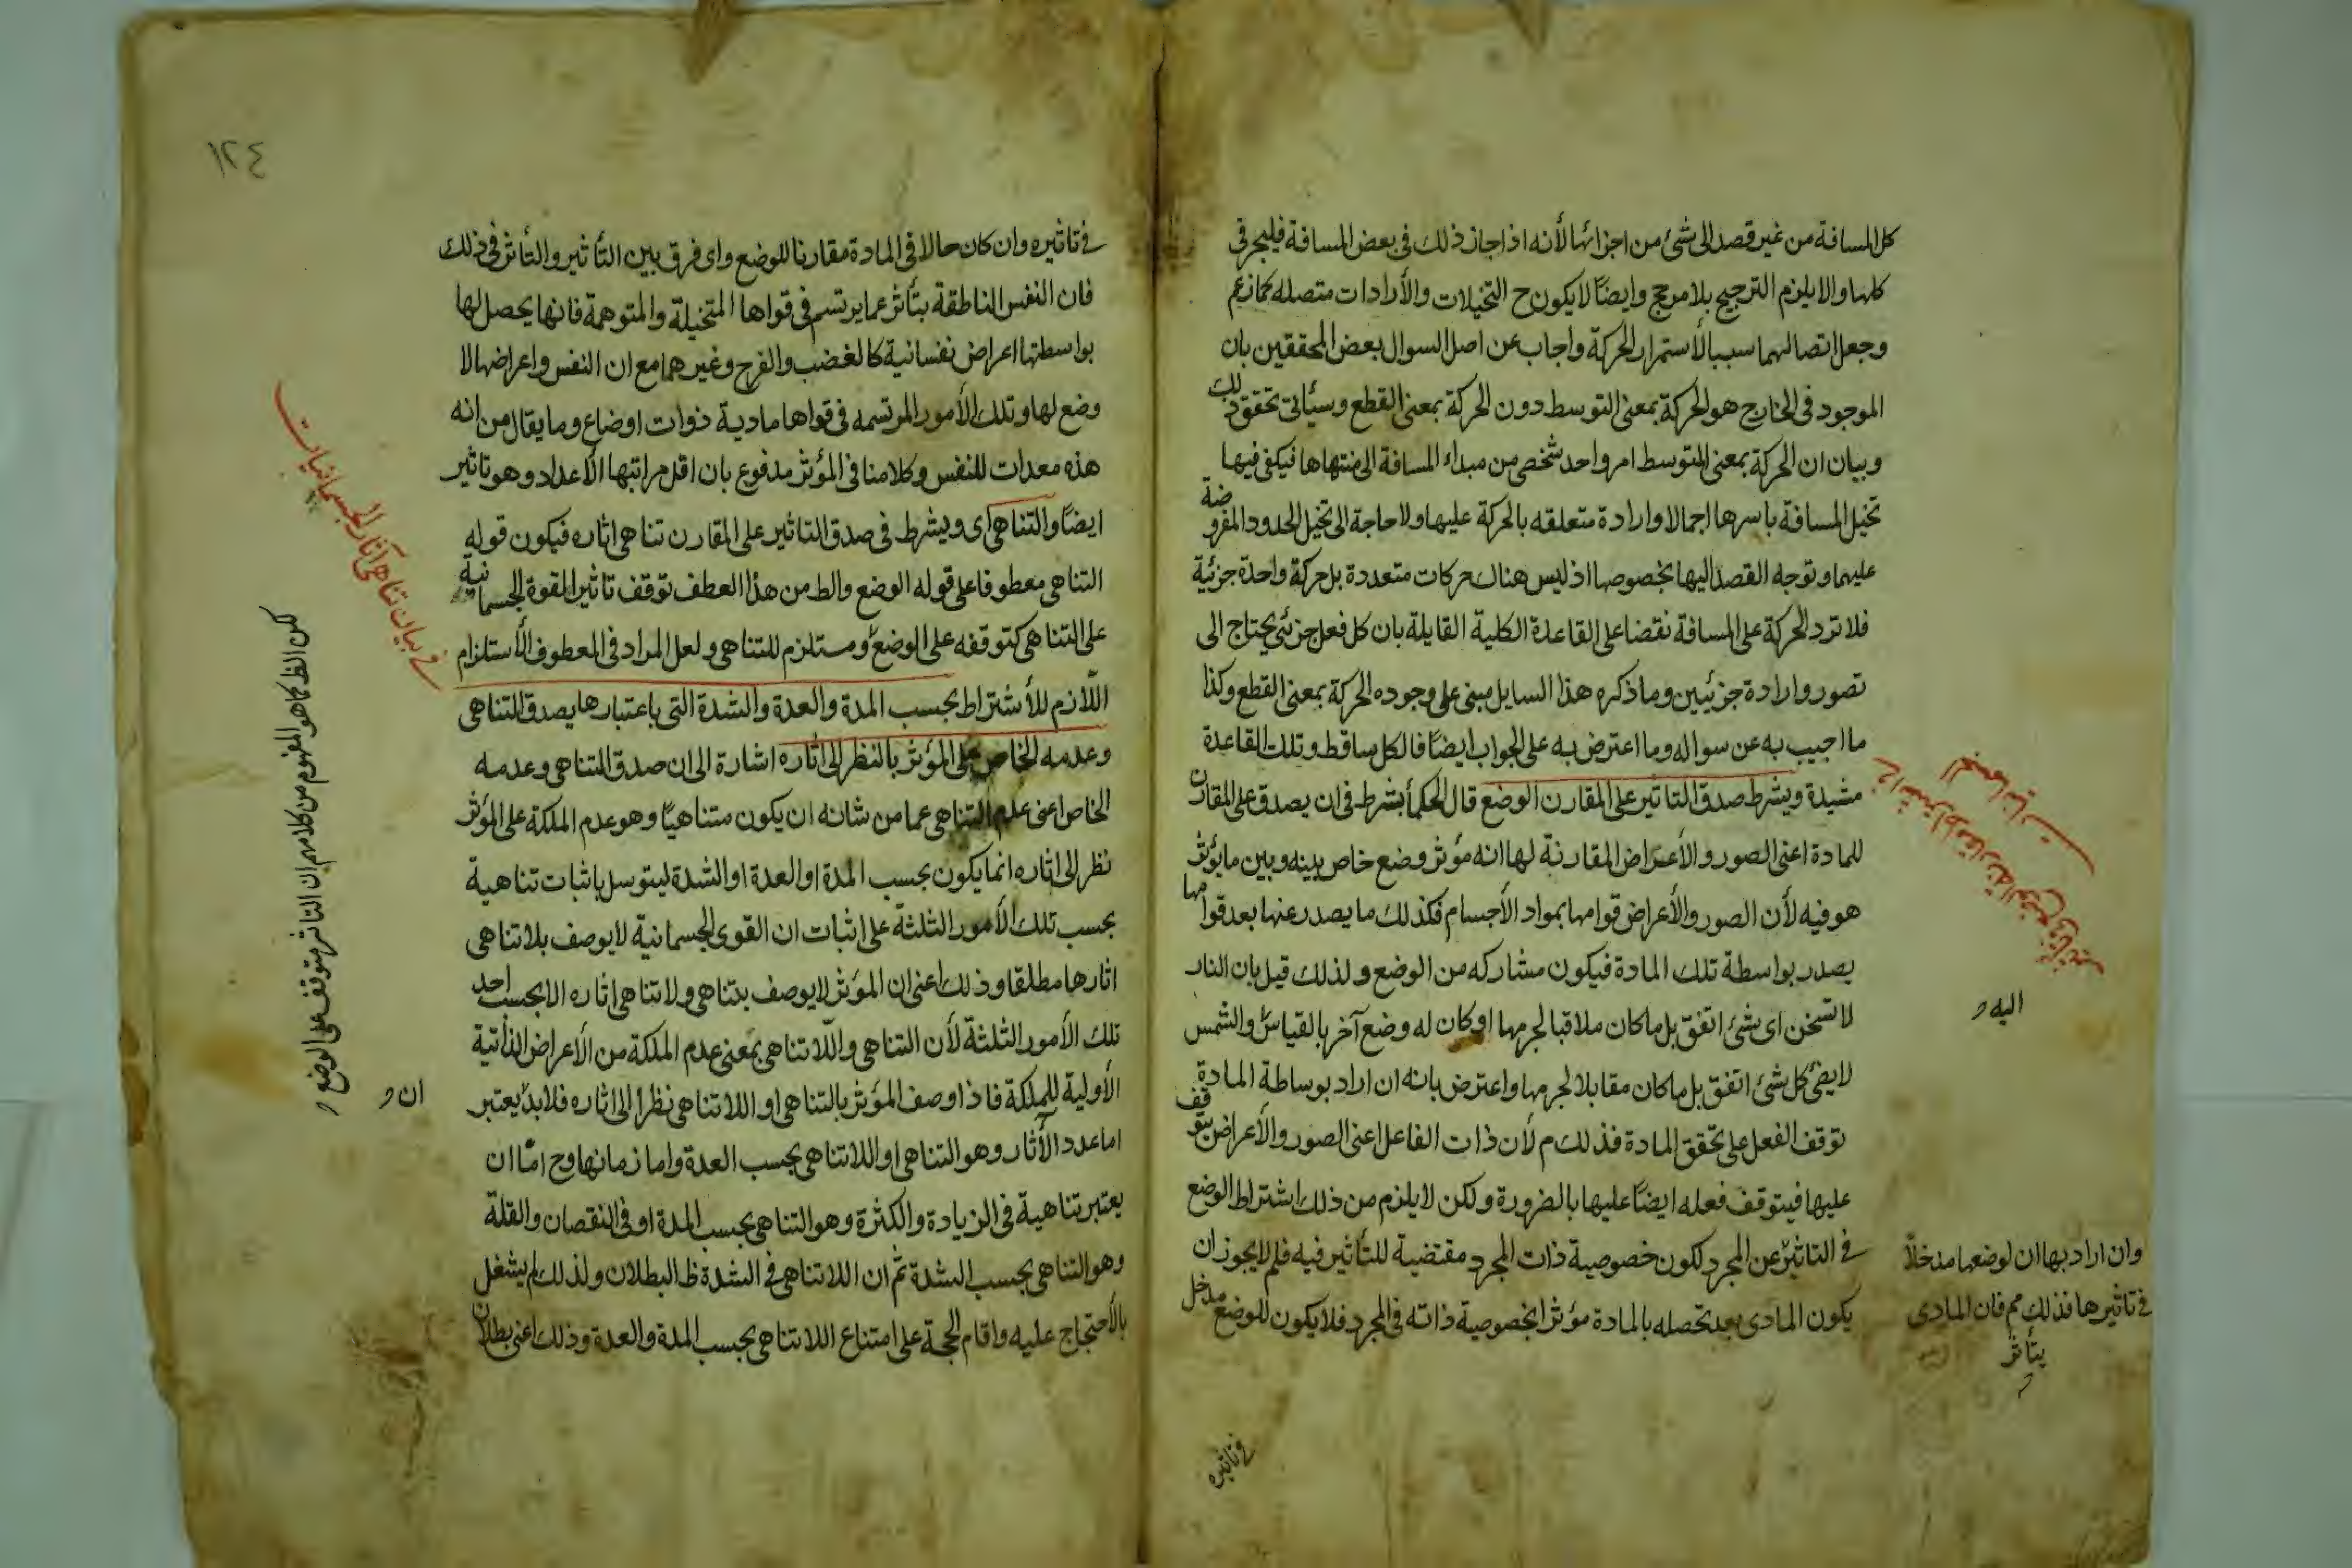 كل المسافة من غير قصد الى شئ من اجزائها لأنه اذا جاز ذلك فى بعض المسافة فليجز فى
كلها والا يلزم الترجيح بلا مرجح وايضًا لا يكون ح التخيلات والأرادات متصله كما زعم
وجعل اتصالهما سببا لأستمرار الحركة واجاب عن اصل السوال بعض المحققين بان
الموجود فى الخارج هو الحركة بمعنى التوسط دون الحركة بمعنى القطع وسيأتى تحقق ذلك
وبيان ان الحركة بمعنى التوسط امر واحد شخصى من مبداء المسافة الى منتهاها فيكفى فيها
تخيل المسافة باسرها اجمالا وارادة متعلقه بالحركة عليها ولا حاجة الى تخيل الحدود المفروضة
عليها وتوجه القصد اليها بخصوصها اذ ليس هناك حركات متعددة بل حركة واحدة جزئية
فلا ترد الحركة على المسافة نقضا على القاعدة الكلية القايلة بان كل فعل جزئى يحتاج الى
تصور وارادة جزئيين وما ذكره هذا السايل مبنى على وجوده الحركة بمعنى القطع وكذا
ما اجيب به عن سواله وما اعترض به على الجواب ايضًا فالكل ساقط وتلك القاعدة
مشيدة ويشرط صدق التاثير على المقارن الوضع قال الحكمأ بشرط فى ان يصدق على المقارن
للمادة اعنى الصور والأعراض المقارنة لها انه مؤثر وضع خاص بينه وبين ما يؤثر
هو فيه لأن الصور والأعراض قوامها بمواد الأجسام فكذلك ما يصدر عنها بعد قوامها
يصدر بواسطة تلك المادة فيكون مشاركه من الوضع ولذلك قيل بان النار
لا تسخن اى شئ اتفق بل ما كان ملاقيا لجرمها او كان له وضع آخر بالقياس والشمس
لا يضئ كل شئ اتفق بل ما كان مقابلا لجرمها واعترض بانه ان اراد بوساطة المادة
توقف الفعل على تحقق المادة فذلك م لأن ذات الفاعل اعنى الصور والأعراض يتوقف
عليها فيتوقف فعله ايضًا عليها بالضرورة ولكن لا يلزم من ذلك اشتراط الوضع
فى التاثير عن المجرد لكون خصوصية ذات المجرد مقتضية للتأثير فيه فلم لا يجوز ان
يكون المادى بعد تحصله بالمادة مؤثرا بخصوصية ذاته فى المجرد فلا يكون للوضع مدخل
اليه
وان اراد بها ان لوضعها مدخلًا
فى تاثيرها فذلك مم فان المادى
يتأثر
فى تاثيره
١٢٤
فى تاثيره وان كان حالا فى المادة مقارنا للوضع واى فرق بين التأثير والتأثر فى ذلك
فان النفس الناطقة يتأثر عما يرتسم فى قواها المتخيلة والمتوهمة فانها يحصل لها
بواسطتها اعراض نفسانية كالغضب والفرح وغيرهما مع ان النفس واعراضها لا
وضع لها وتلك الأمور المرتسمه فى قواها مادية ذوات اوضاع وما يقال من انه
هذه معدات للنفس وكلامنا فى المؤثر مدفوع بان اقل مراتبها الأعداد وهو تاثير
ايضًا والتناهى اى ويشرط فى صدق التاثير على المقارن تناهى اثاره فيكون قوله
التناهى معطوفا على قوله الوضع والظ من هذا العطف توقف تاثير القوة الجسمانية
على التناهى كتوقفه على الوضع ومستلزم للتناهى ولعل المراد فى المعطوف الأستلزام
اللّازم للأشتراط بحسب المدة والعدة والشدة التى باعتبارها يصدق التناهى
وعدمه الخاص على المؤثر بالنظر الى اثاره اشارة الى ان صدق التناهى وعدمه
الخاص اعنى عدم التناهى عما من شانه ان يكون متناهيًا وهو عدم الملكة على المؤثر
نظر الى اثاره انما يكون بحسب المدة او العدة او الشدة ليتوسل باثبات تناهية
بحسب تلك الأمور الثلثة على اثبات ان القوى الجسمانية لا يوصف بلا تناهى
اثارها مطلقا وذلك اعنى ان المؤثر لا يوصف بتناهى ولا تناهى اثاره الا بحسب احد
تلك الأمور الثلثة لأن التناهى واللّا تناهى بمعنى عدم الملكة من الأعراض الذاتية
الأولية للملكة فاذا وصف المؤثر بالتناهى او اللا تناهى نظرا الى اثاره فلا بدّ يعتبر
اما عدد الأثار وهو التناهى او اللا تناهى بحسب العدة واما زمانها وح امّا ان
يعتبر تناهية فى الزيادة والكثرة وهو التناهى بحسب المدة او فى النقصان والقلة
وهو التناهى بحسب الشدة ثم ان اللا تناهى فى الشدة ظ البطلان ولذلك لم يشغل
بالأحتجاج عليه واقام الحجة على امتناع اللا تناهى بحسب المدة والعدة وذلك اعنى بطلان
فى بيان تناهى آثار الجسمانيات
لكن الظ كما هو المفهوم من كلامهم ان التأثير متوقف على الوضع
ان